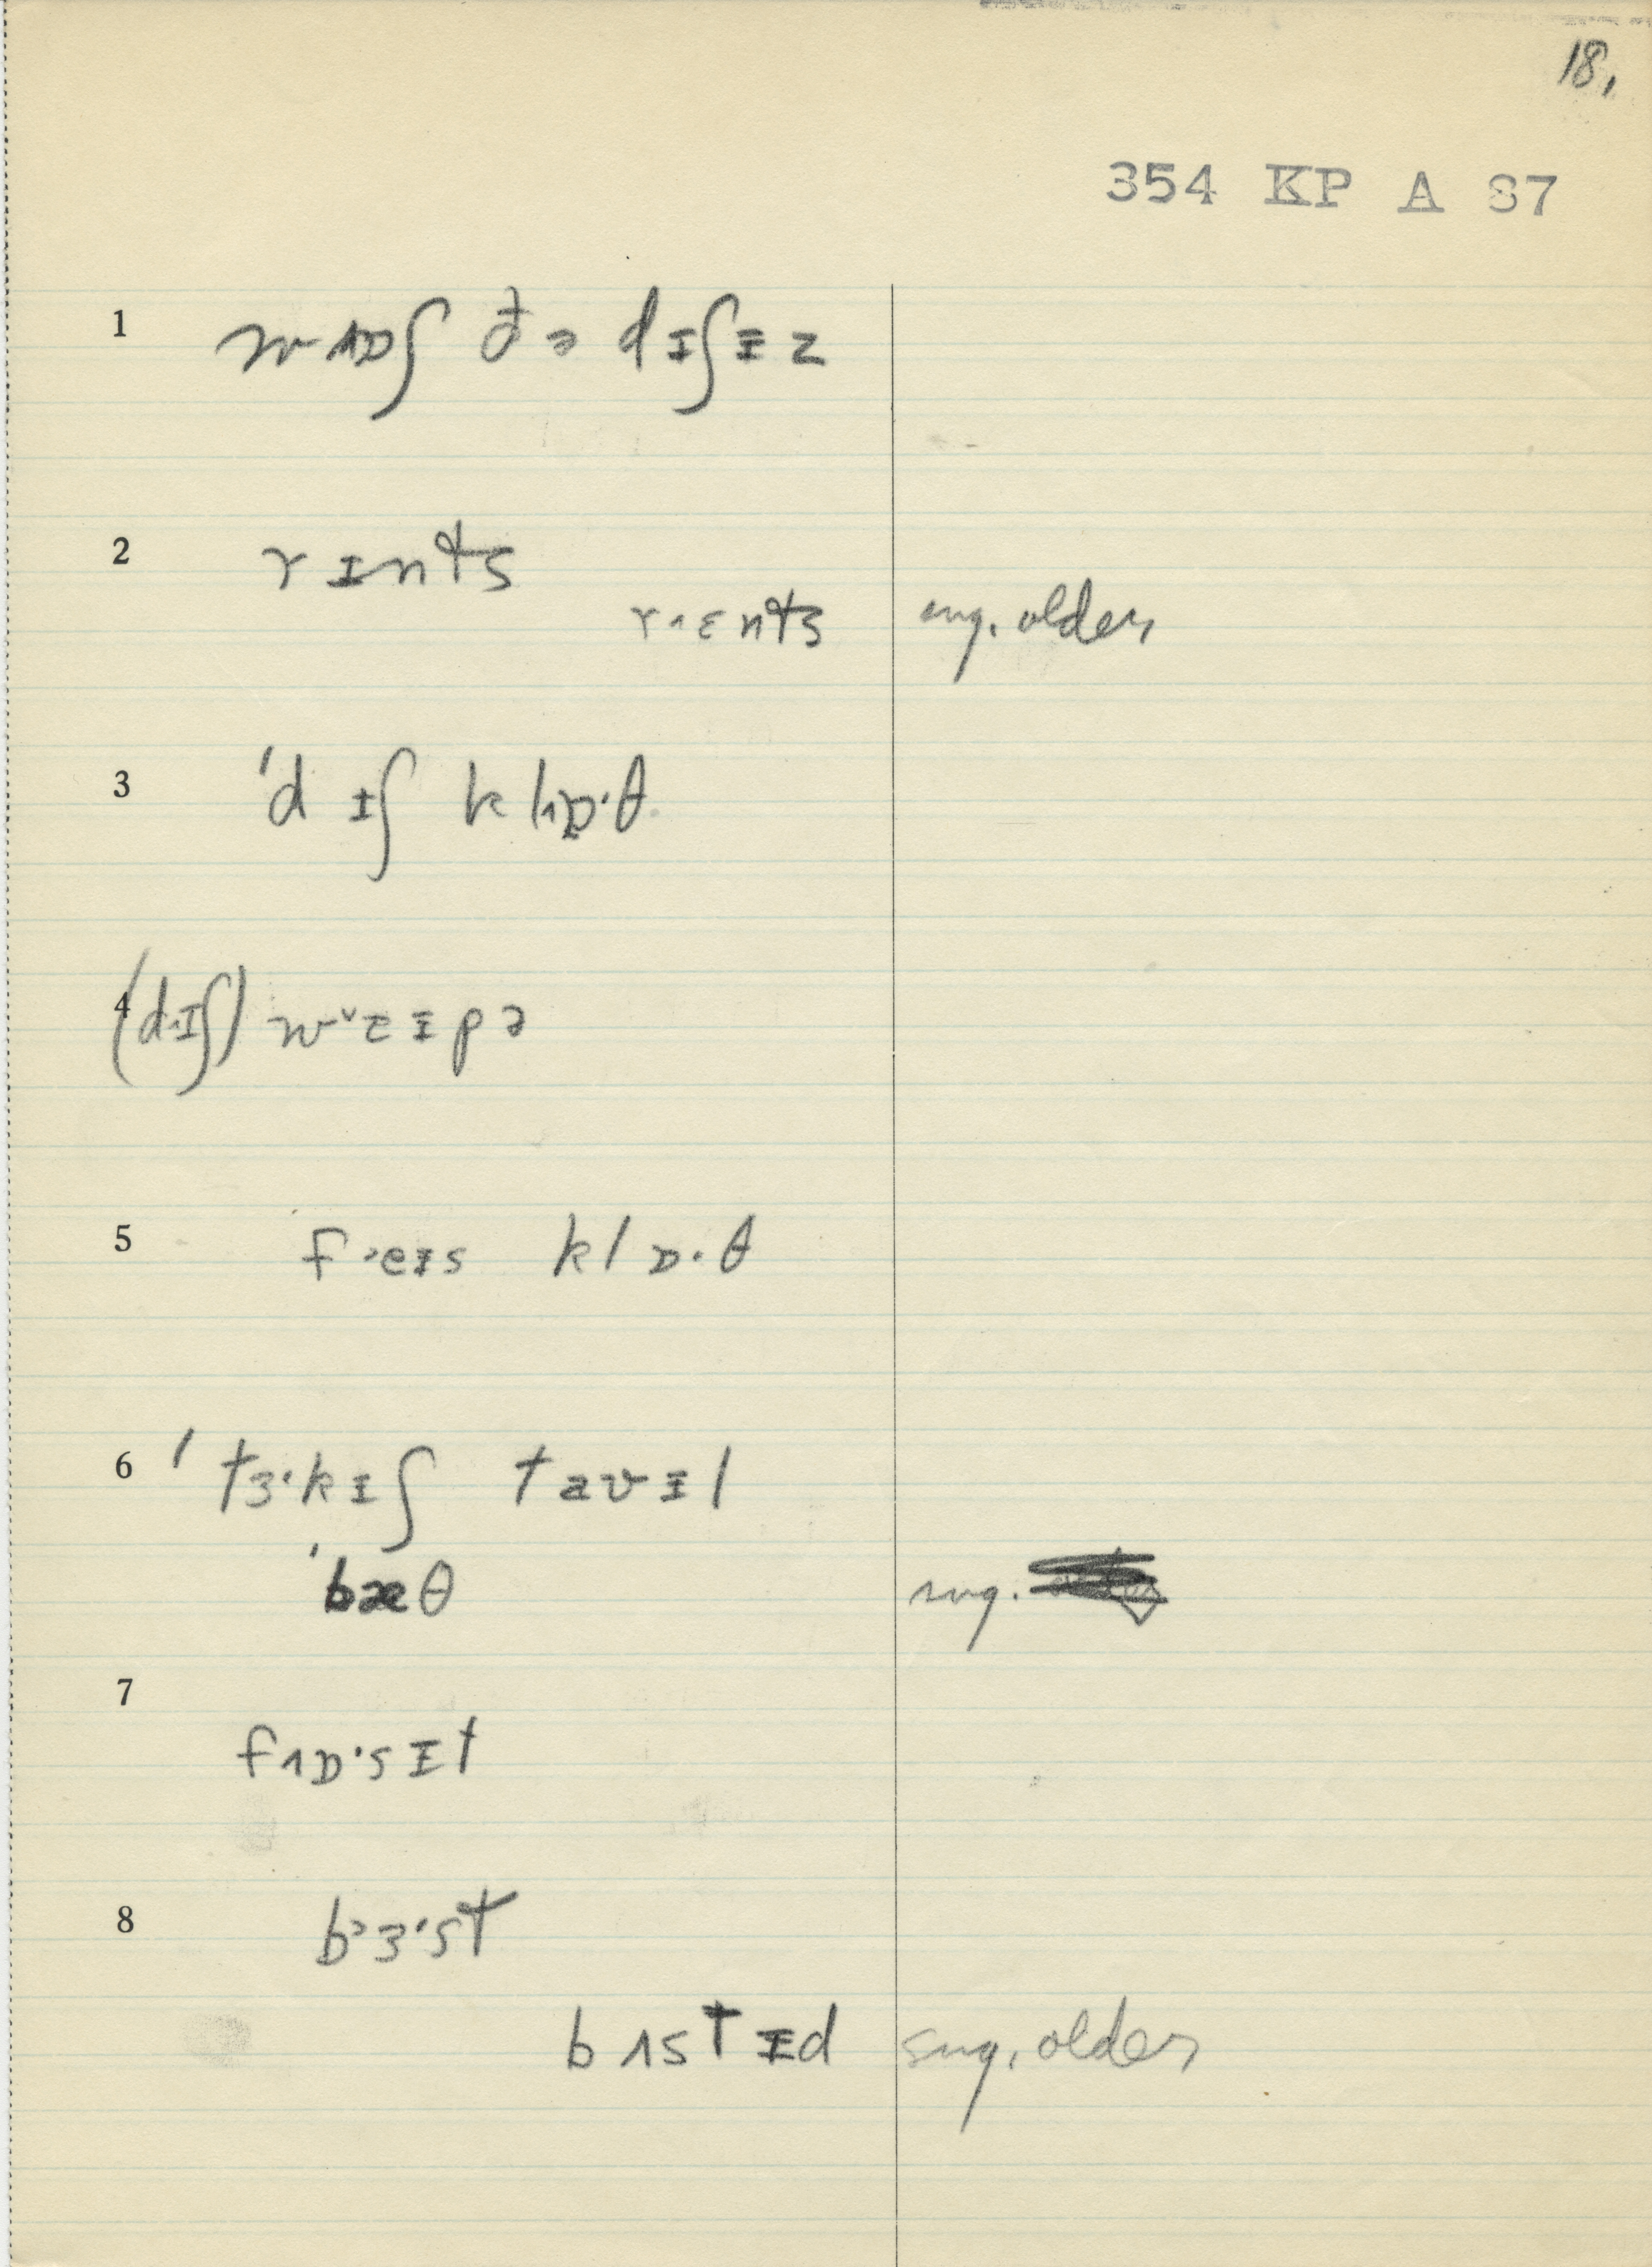 18.
354 KP A 87
1 wɒʃ ðə dɪʃɪz
2 rɪnts
rɛnts sug. older
3 'dɪʃ klɒ·θ
4 (dɪʃ) wɛɪpə
5 feɪs klɒ·θ
6 'tɜ·kɪʃ tavɪl
'bæθ sug.
7 fɒ·sɪt
8 bɜ·st
bʌstɪd sug. older